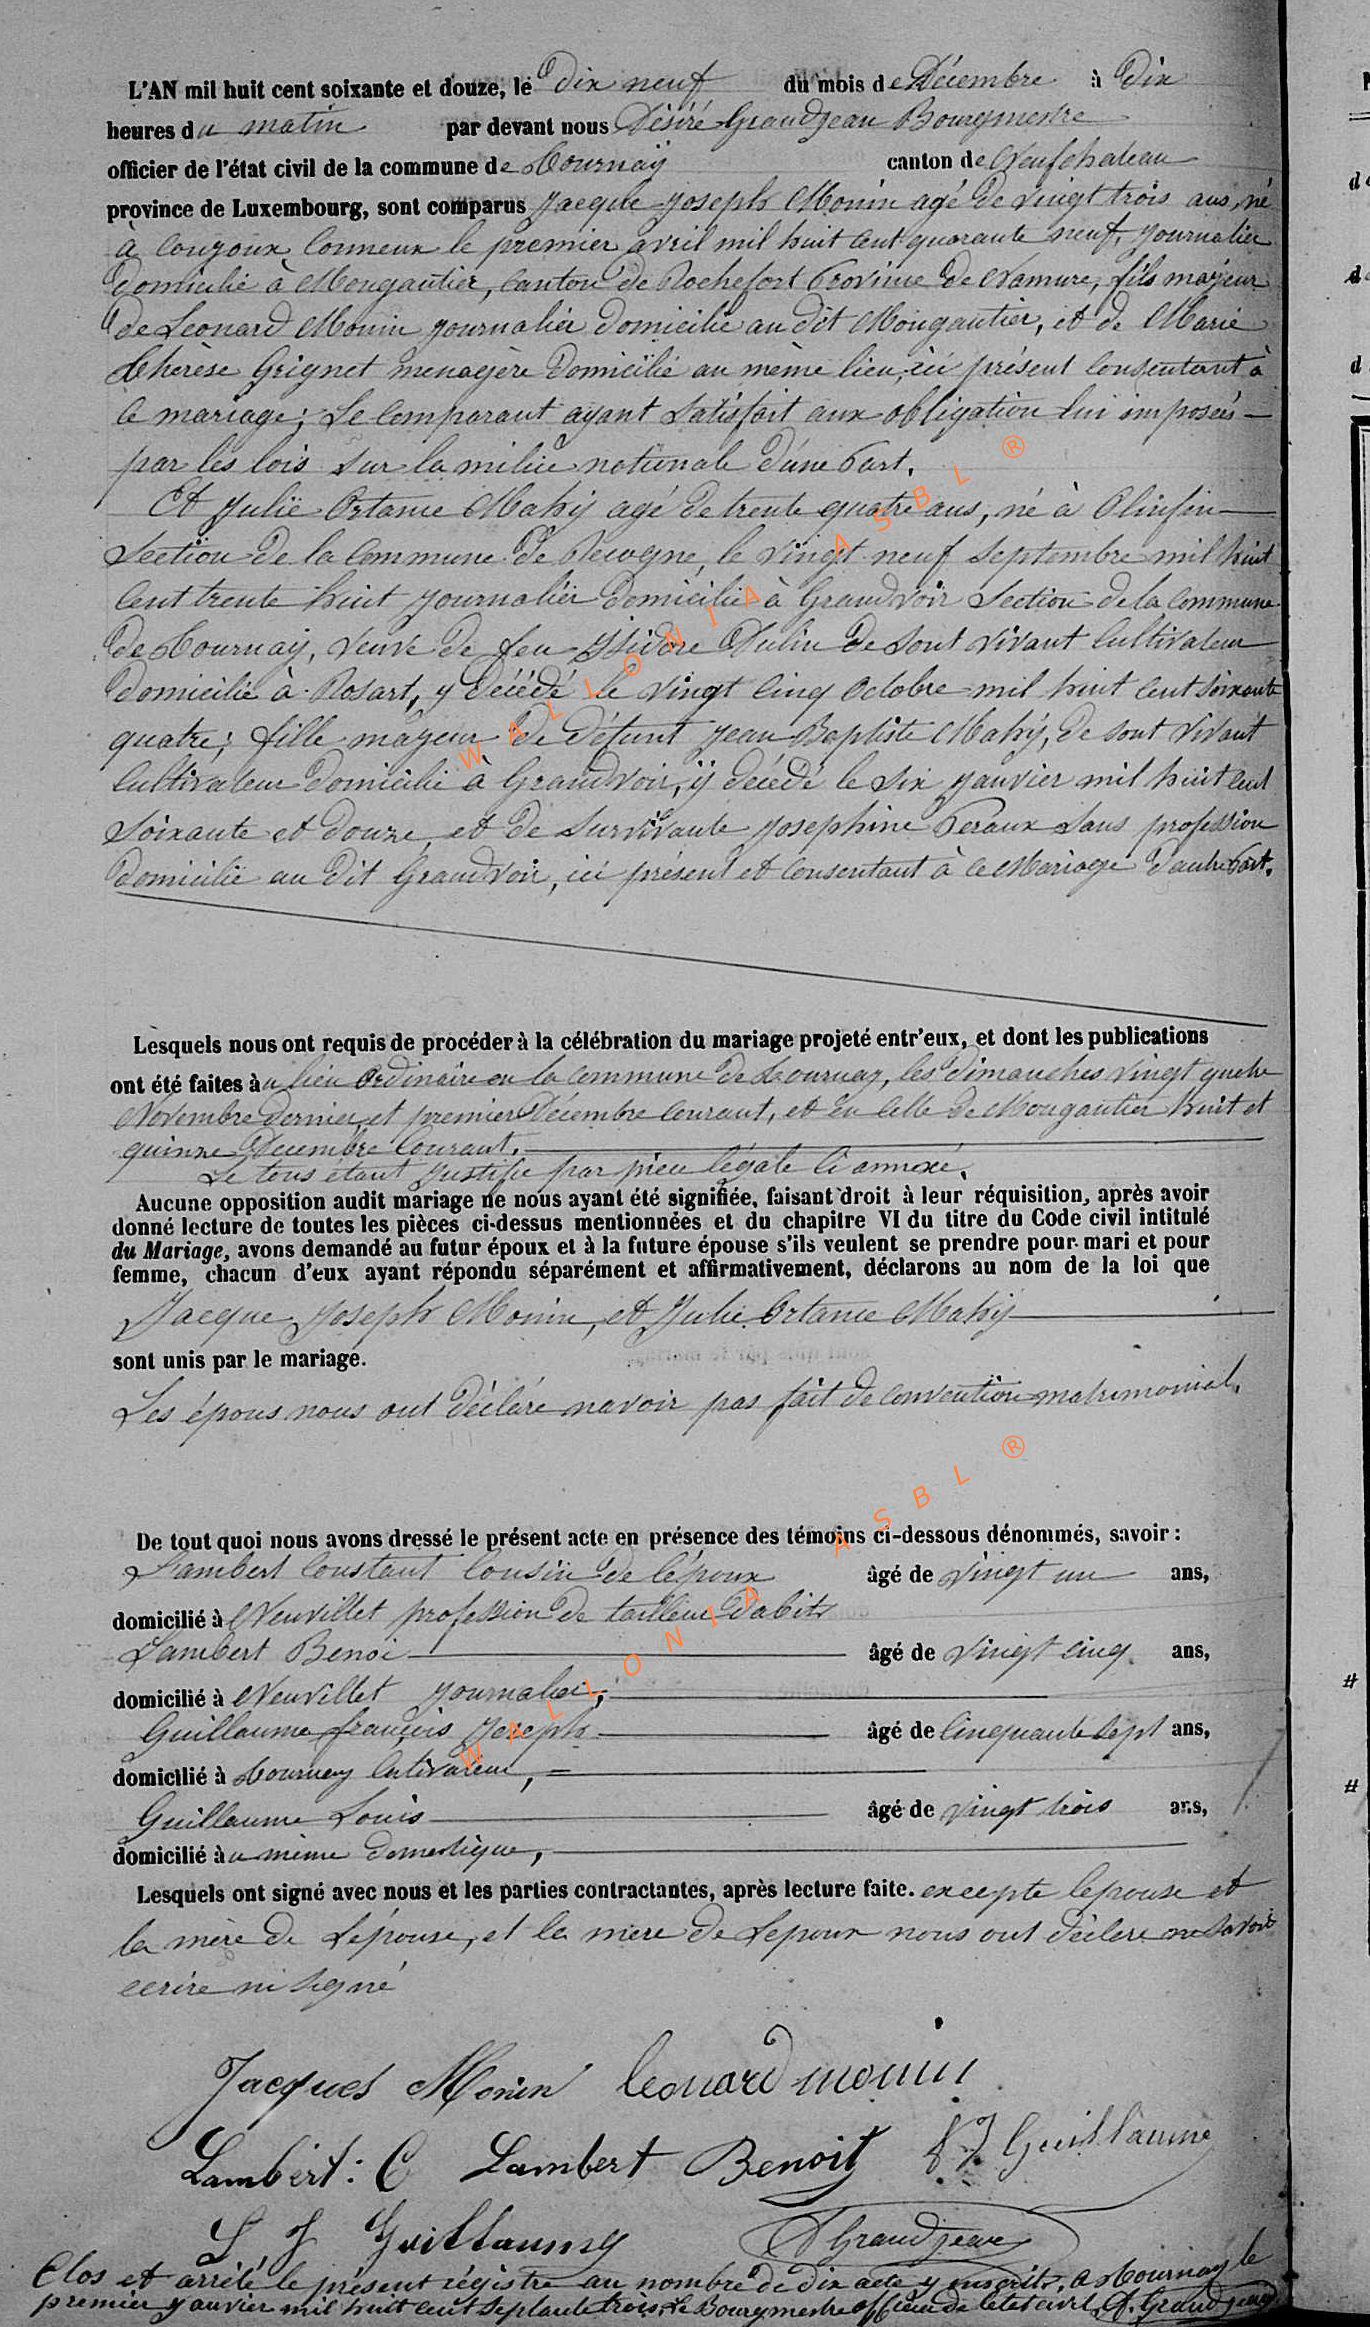 L'AN mil huit cent soixante et douze, le dix neuf du mois de Décembre à Dix
heures du matin par devant nous Désiré Grandjean Bourgmestre
officier de l'état civil de la commune de Tournaÿ canton de Neufchateau
province de Luxembourg, sont comparus Jacque Joseph Monin agé de vingt trois ans, né
à Conneux le premier avril mil huit cent quarante neuf, Journalier
Domicilié à Mongautier, Canton de Rochefort Province de Namure, fils majeur
de Leonard Monin journalier domicilié au dit Mongautier, et de Marie
Thérèse Grignet menagère Domicilié au même lieu, ici présent Consentant à
ce mariage; Le Comparant ayant satisfait aux obligation lui imposées
par les lois sur la milice nationale d'une Part.
Et Julie Ortance Mahy agé de trente quatre ans, né à Olinfin
Section de la Commune de Recogne, le vingt neuf Septembre mil huit
Cent trente huit Journalier domicilié à Grandvoir Section de la Commune
de Tournay, veuve de feu Isidore Dulin de sont vivant Cultivateur
Domicilié à Rosart, y décédé le vingt Cinq Octobre mil huit Cent soixante
quatre; fille majeur de défunt Jean Baptiste Mahy, de sont vivant
Cultivateur domicilié à Grandvoir, ÿ décédé le six janvier mil huit Cent
Soixante et douze, et de Survivante Josephine Peraux sans profession
Domicilié au dit Grandvoir, ici présent et Consentant à ce Mariage d'autre Part.
Lesquels nous ont requis de procéder à la célébration du mariage projeté entr'eux, et dont les publications
ont été faites au lieu Ordinaire en la Commune de Tournay, les dimanches vingt quatre
Novembre dernier et premier Décembre Courant, et en Celle de Mongautier huit et
quinze Décembre Courant.
Le tous étant justifié par pièce légale ci annexé.
Aucune opposition audit mariage ne nous ayant été signifiée, faisant droit à leur réquisition, après avoir
donné lecture de toutes les pièces ci-dessus mentionnées et du chapitre VI du titre du Code civil intitulé
du Mariage, avons demandé au futur époux et à la future épouse s'ils veulent se prendre pour mari et pour
femme, chacun d'eux ayant répondu séparément et affirmativement, déclarons au nom de la loi que
Jacque Joseph Monin, et Julie Ortance Mahy
sont unis par le mariage.
Les épous nous ont Déclaré navoir pas fait de Convention matrimonial.
De tout quoi nous avons dressé le présent acte en présence des témoins ci-dessous dénommés, savoir :
Lambert Constant Cousin de l'époux âgé de vingt un ans,
domicilié à Neuvillet profession de tailleur d'abits
Lambert Benoi âgé de vingt cinq ans,
domicilié à Neuvillet journalier,
Guillaume françois Joseph âgé de Cinquante sept ans,
domicilié à Tournay Cultivateur,
Guillaume Louis âgé de vingt trois ans,
domicilié au même domestique,
Lesquels ont signé avec nous et les parties contractantes, après lecture faite. excepte lepouse et
la mère de Lépouse, et la mere de Lepoux nous ont déclere ne savoir
ecrire ni signé
Jacques Monin Leonard monin
Lambert: C Lambert Benoit f J Guillaume
L J Guillaume D Grandjean
Clos et arrêté le présent régistre au nombre de dix acte y inscrits, a Tournay le
premier janvier mil huit cent septante trois. Le Bourgmestre officier de letat civil, D. Grandjean
WALLONIA ASBL ®
WALLONIA ASBL ®